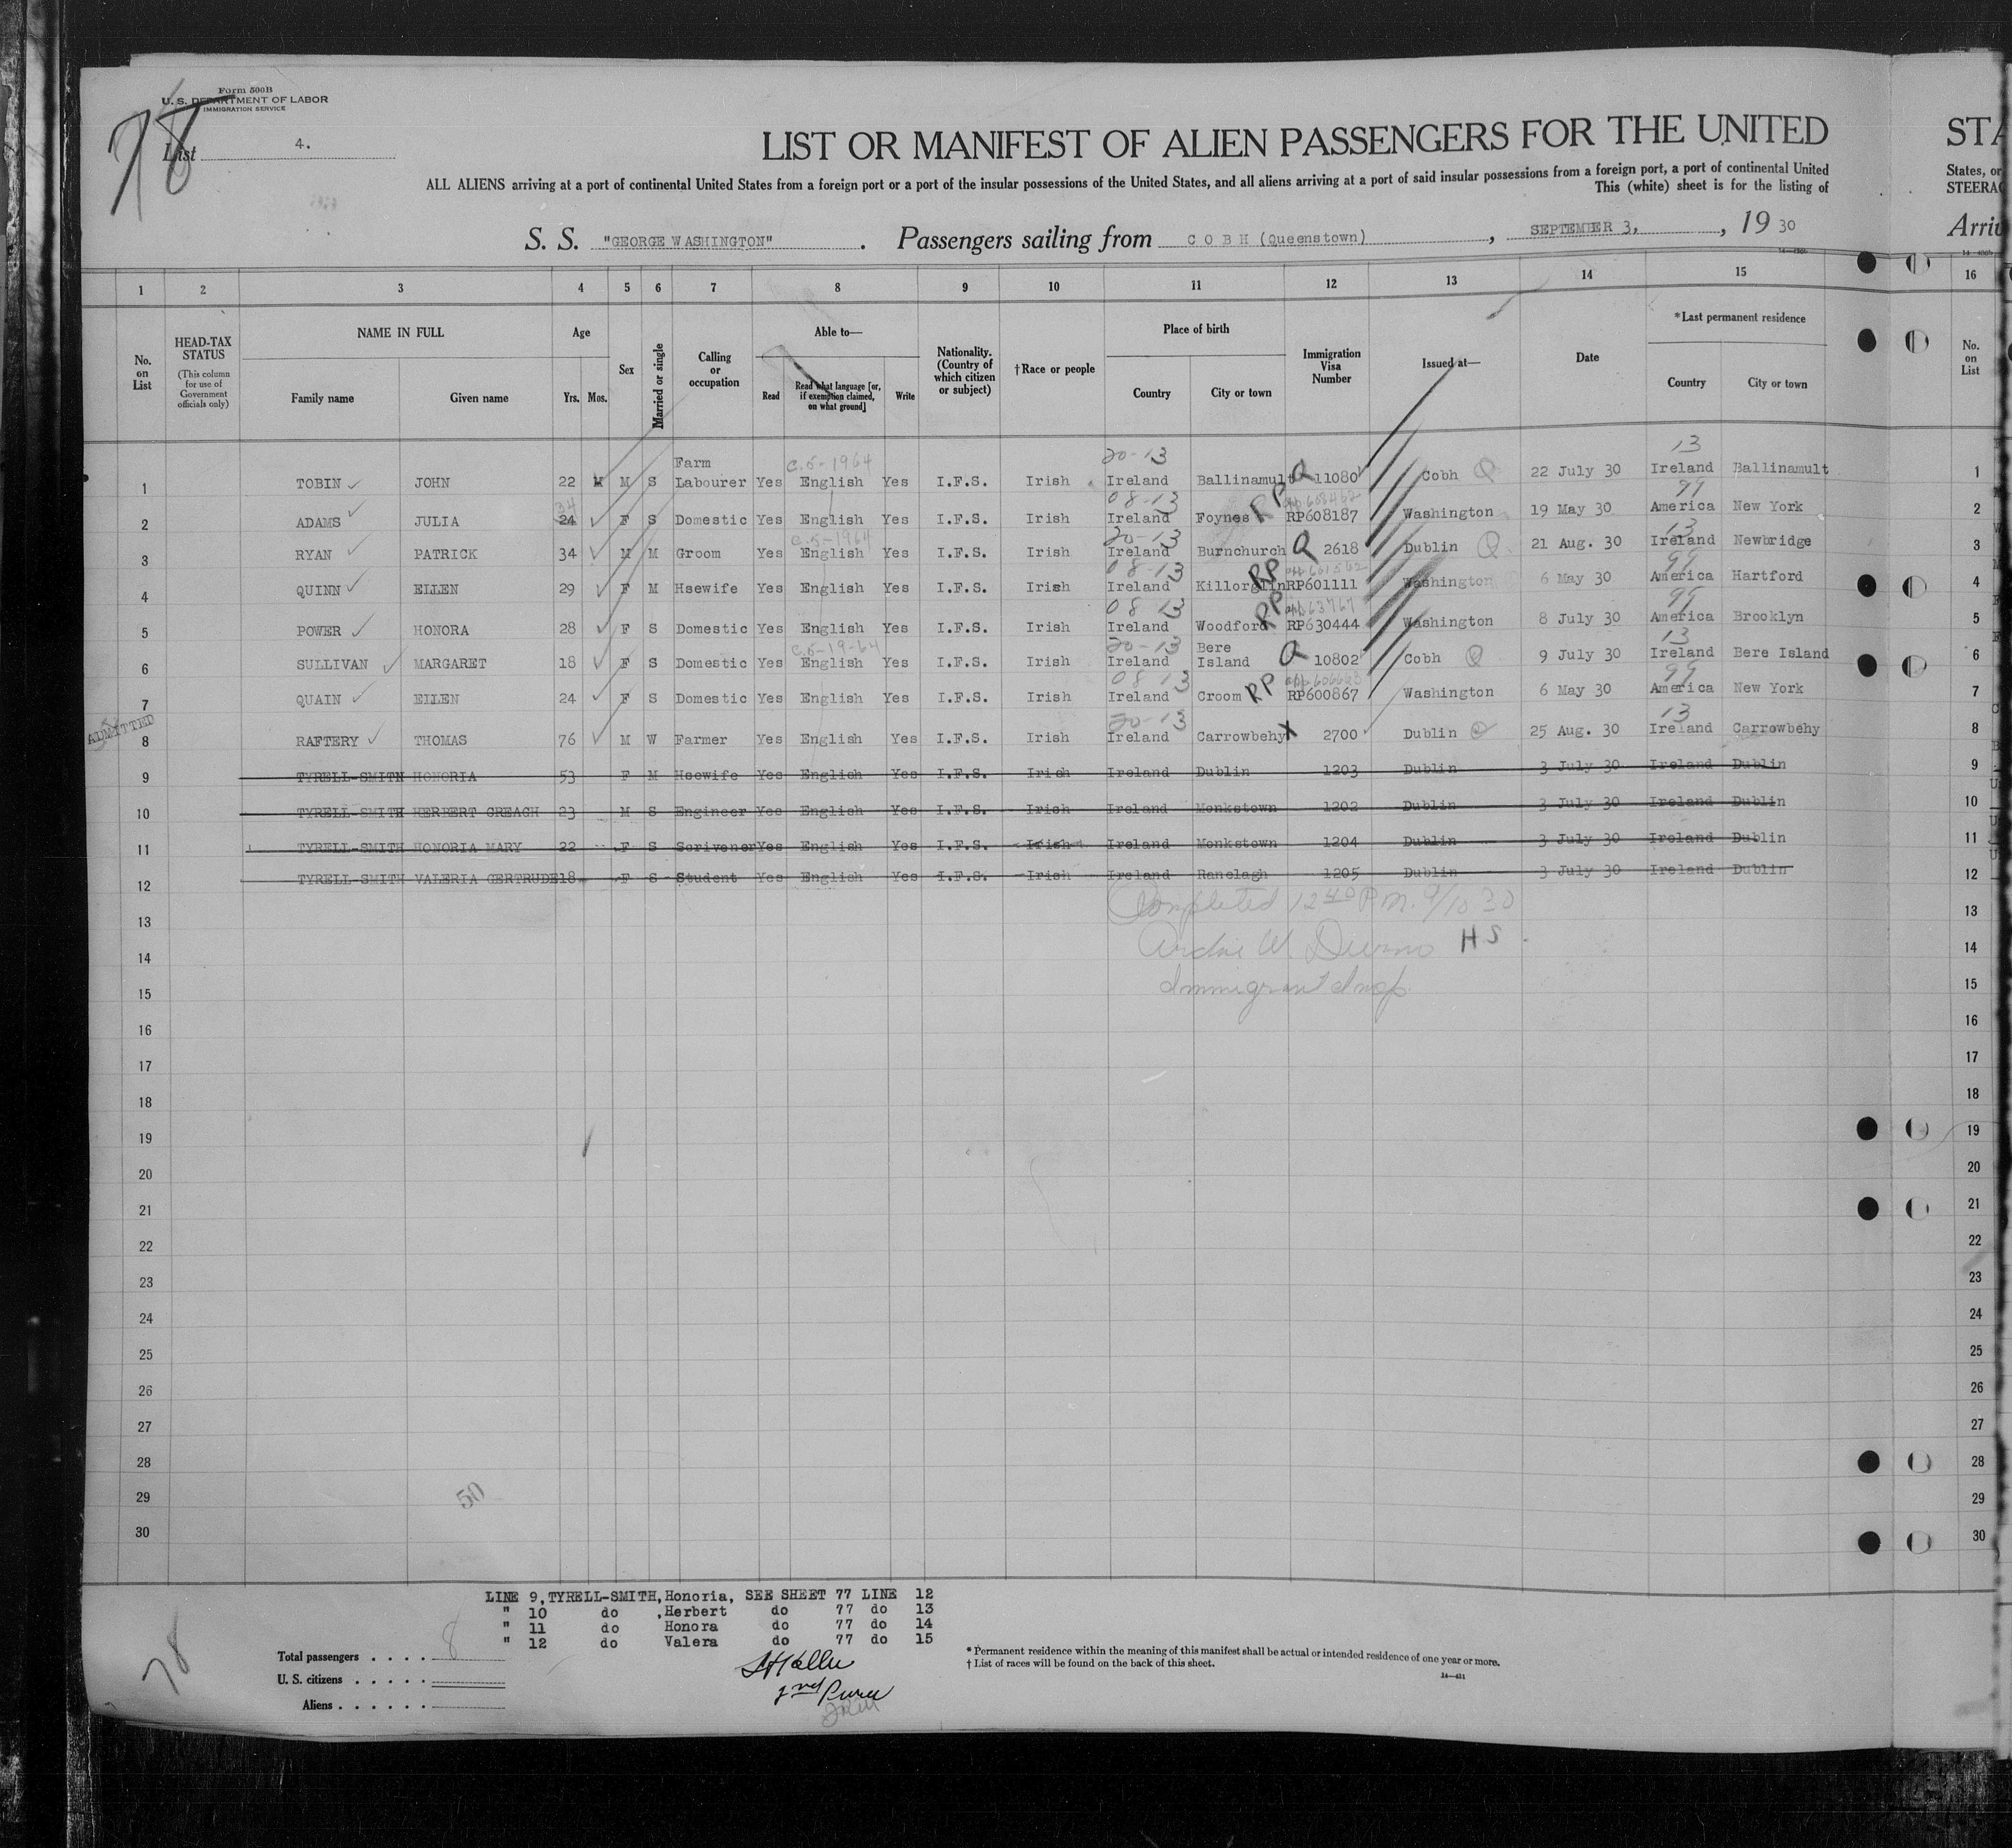 Form 500B
U. S. DEPARTMENT OF LABOR
IMMIGRATION SERVICE
78
List 4.
LIST OR MANIFEST OF ALIEN PASSENGERS FOR THE UNITED
STA
ALL ALIENS arriving at a port of continental United States from a foreign port or a port of the insular possessions of the United States, and all aliens arriving at a port of said insular possessions from a foreign port, a port of continental United
States, or
This (white) sheet is for the listing of
STEERAG
S. S. "GEORGE WASHINGTON" . Passengers sailing from C O B H (Queenstown) , SEPTEMBER 3, , 19 30
Arriv
1 2 3 4 5 6 7 8 9 10 11 12 13 14 15 16
No. on List
HEAD-TAX STATUS
(This column for use of Government officials only)
NAME IN FULL
Family name Given name
Age
Yrs. Mos.
Sex
Married or single
Calling or occupation
Able to—
Read
Read what language [or, if exemption claimed, on what ground]
Write
Nationality. (Country of which citizen or subject)
†Race or people
Place of birth
Country City or town
Immigration Visa Number
Issued at—
Date
*Last permanent residence
Country City or town
No. on List
C.5-1964 20-13 13
1 TOBIN JOHN 22 M M S Farm Labourer Yes English Yes I.F.S. Irish Ireland Ballinamult Q 11080 Cobh Q 22 July 30 Ireland Ballinamult 1
34 08-13 99
2 ADAMS JULIA 24 F S Domestic Yes English Yes I.F.S. Irish Ireland Foynes RP RP608187 Washington 19 May 30 America New York 2
C.5-1964 20-13 13
3 RYAN PATRICK 34 M M Groom Yes English Yes I.F.S. Irish Ireland Burnchurch Q 2618 Dublin Q 21 Aug. 30 Ireland Newbridge 3
08-13 99
4 QUINN ELLEN 29 F M Hsewife Yes English Yes I.F.S. Irish Ireland Killorglin RP RP601111 Washington 6 May 30 America Hartford 4
08 13 99
5 POWER HONORA 28 F S Domestic Yes English Yes I.F.S. Irish Ireland Woodford RP RP630444 Washington 8 July 30 America Brooklyn 5
C.5-19-64 20-13 13
6 SULLIVAN MARGARET 18 F S Domestic Yes English Yes I.F.S. Irish Ireland Bere Island Q 10802 Cobh Q 9 July 30 Ireland Bere Island 6
08 13 99
7 QUAIN EILEN 24 F S Domestic Yes English Yes I.F.S. Irish Ireland Croom RP RP600867 Washington 6 May 30 America New York 7
20-13 13
ADMITTED
8 RAFTERY THOMAS 76 M W Farmer Yes English Yes I.F.S. Irish Ireland Carrowbehy X 2700 Dublin 25 Aug. 30 Ireland Carrowbehy 8
9 TYRELL-SMITH HONORIA 53 F M Hsewife Yes English Yes I.F.S. Irish Ireland Dublin 1203 Dublin 3 July 30 Ireland Dublin 9
10 TYRELL-SMITH HERBERT GREAGH 23 M S Engineer Yes English Yes I.F.S. Irish Ireland Monkstown 1202 Dublin 3 July 30 Ireland Dublin 10
11 TYRELL-SMITH HONORIA MARY 22 F S Scrivener Yes English Yes I.F.S. Irish Ireland Monkstown 1204 Dublin 3 July 30 Ireland Dublin 11
12 TYRELL-SMITH VALERIA GERTRUDE 18 F S Student Yes English Yes I.F.S. Irish Ireland Ranelagh 1205 Dublin 3 July 30 Ireland Dublin 12
13 Completed 12 40 P.M. 9/10 30 13
14 H S 14
15 Immigrant Insp. 15
16 16
17 17
18 18
19 19
20 20
21 21
22 22
23 23
24 24
25 25
26 26
27 27
28 28
29 50 29
30 30
LINE 9, TYRELL-SMITH, Honoria, SEE SHEET 77 LINE 12
" 10 do , Herbert do 77 do 13
" 11 do Honora do 77 do 14
" 12 do Valera do 77 do 15
78
Total passengers . . . . 8
U. S. citizens . . . . .
Aliens . . . . . .
2nd Purser
* Permanent residence within the meaning of this manifest shall be actual or intended residence of one year or more.
† List of races will be found on the back of this sheet.
14—431